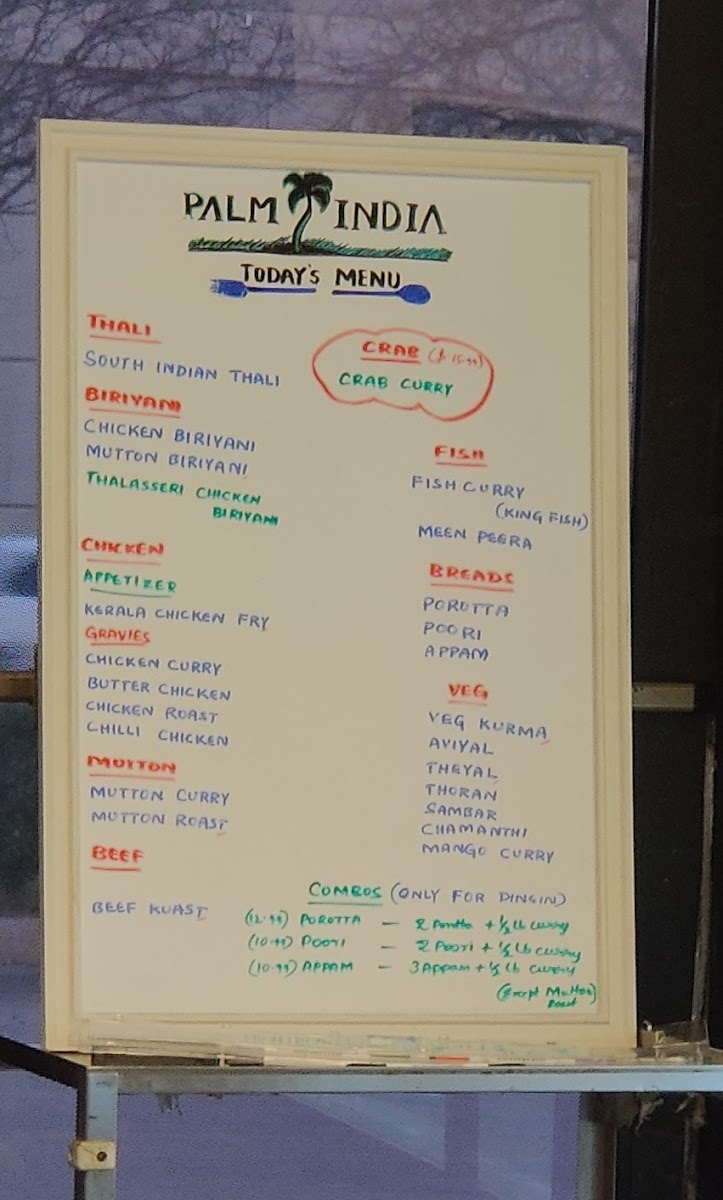 PALM INDIA
TODAY'S MENU
THALI
SOUTH INDIAN THALI
BIRIYANI
CHICKEN BIRIYANI
MUTTON BIRIYANI
THALASSERI CHICKEN
BIRIYANI
CHICKEN
APPETIZER
KERALA CHICKEN FRY
GRAVIES
CHICKEN CURRY
BUTTER CHICKEN
CHICKEN ROAST
CHILLI CHICKEN
MUTTON
MUTTON CURRY
MUTTON ROAST
BEEF
BEEF ROAST
CRAB ($15.99)
CRAB CURRY
FISH
FISH CURRY
(KING FISH)
MEEN PEERA
BREADS
POROTTA
POORI
APPAM
VEG
VEG KURMA
AVIYAL
THEYAL
THORAN
SAMBAR
CHAMANTHI
MANGO CURRY
COMBOS (ONLY FOR DINGIN)
(12.99) POROTTA — 2 + ½ lb curry
(10.99) POORI — 2 Poori + ½ lb curry
(10.99) APPAM — 3 Appam + ½ lb curry
(Except Mutton
Roast)